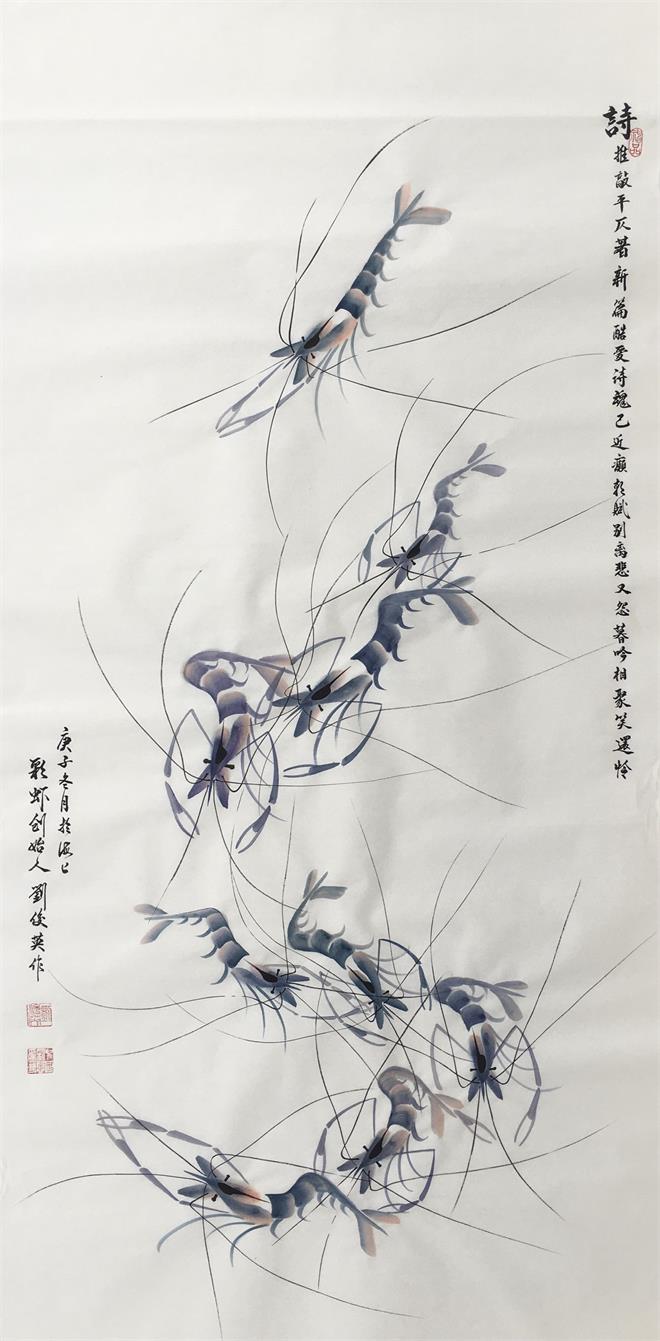 詩
推敲平仄著新篇酷爱诗魂已近癫朝賦别离悲又怨暮吟相聚笑還怜
庚子冬月於海上
彩虾创始人劉俊英作